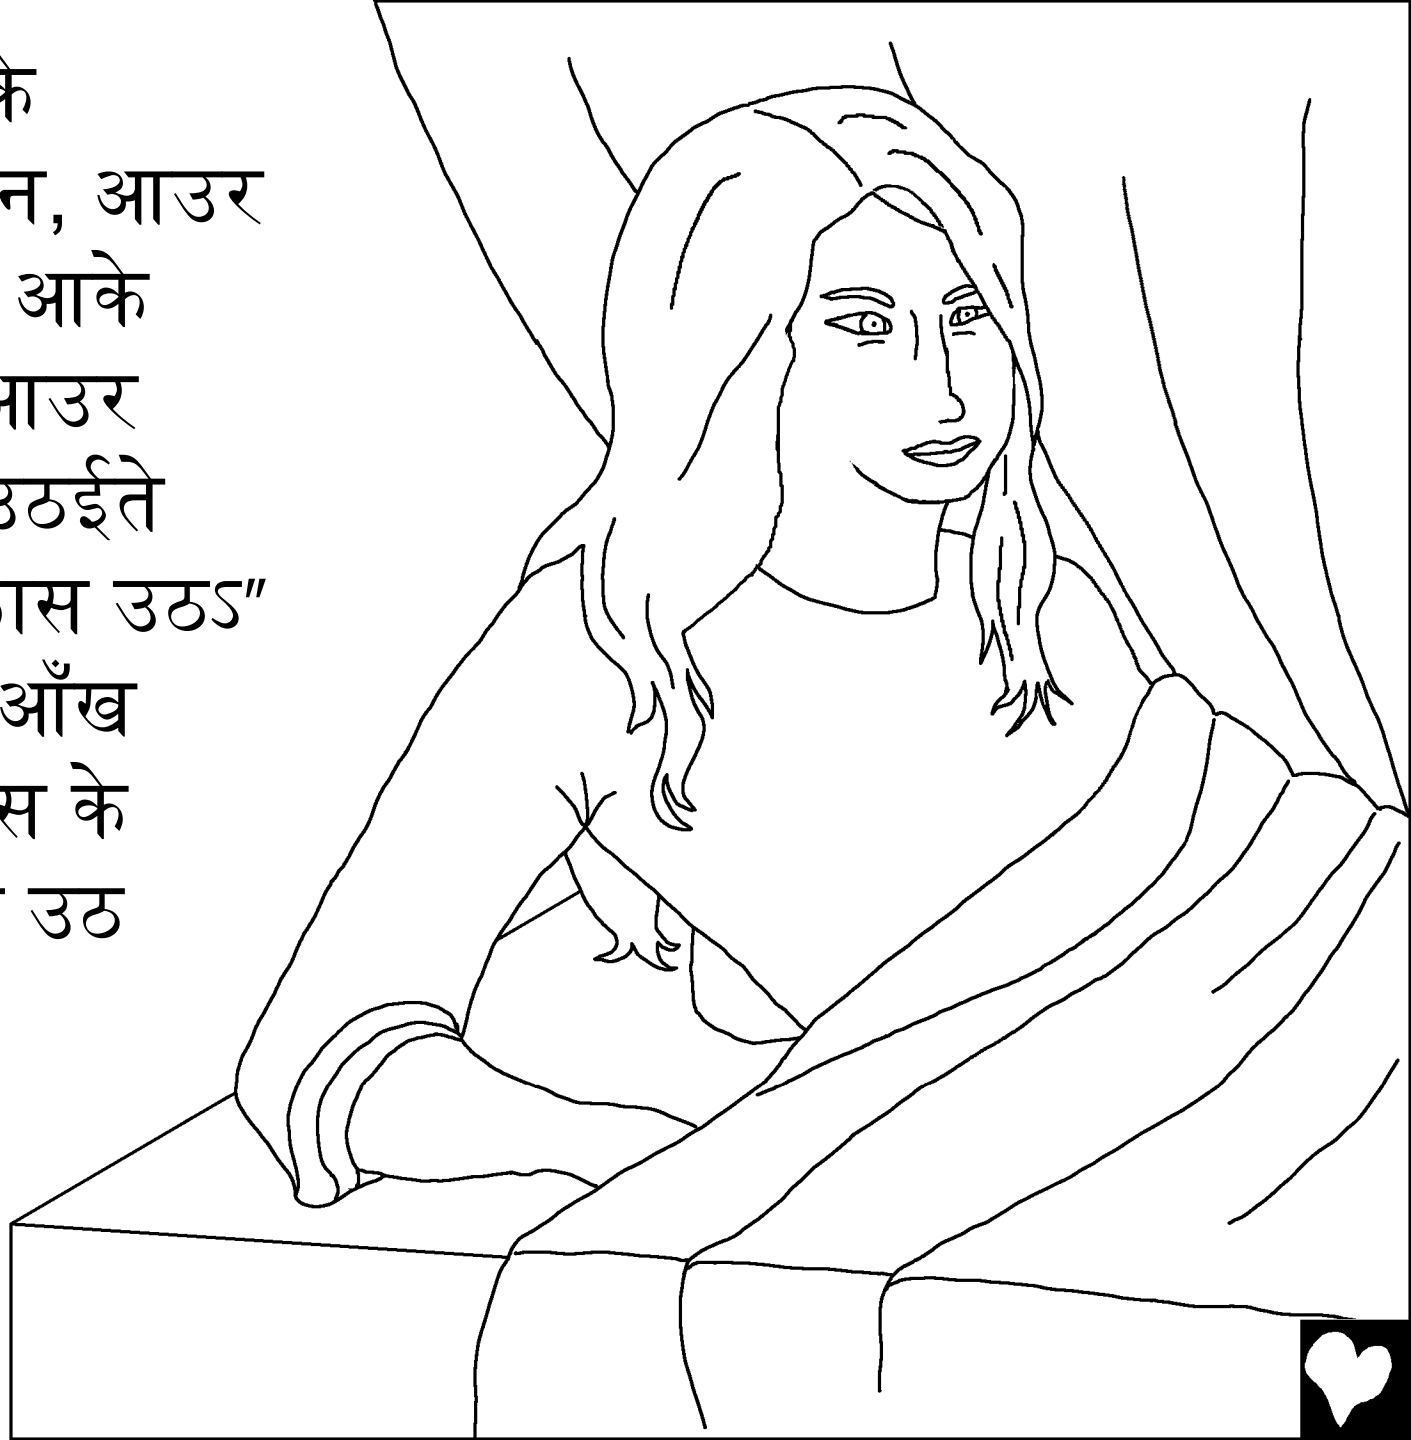 के
न, आउर
आके
आउर
उठईते
ास उठऽ"
आँख
स के
उठ